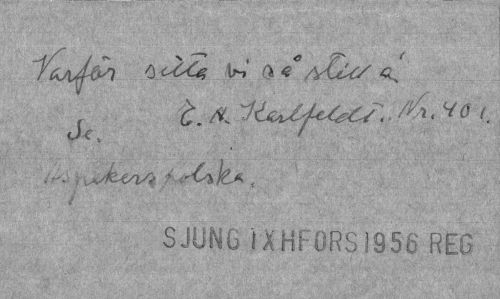 Varför sitta vi så stilla
E. A. Karlfeldt. Nr. 40 1.
Se.
Aspåkerspolska.
SJUNG IXHFORS1956 REG